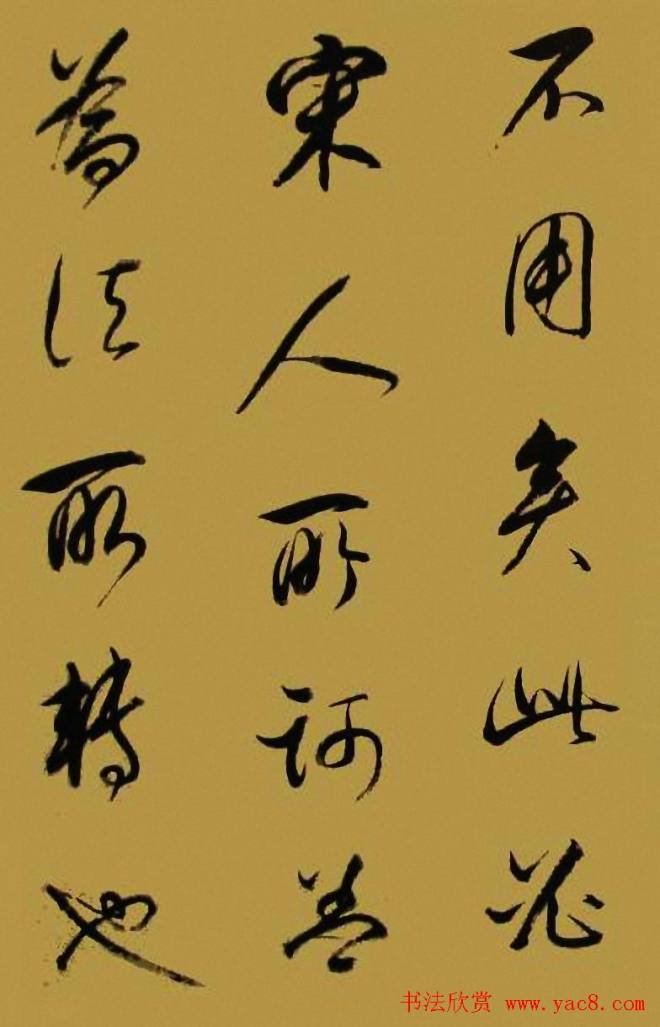 不用矣此
宋人所訶盖
為法所轉也
书法欣赏 www.yac8.com